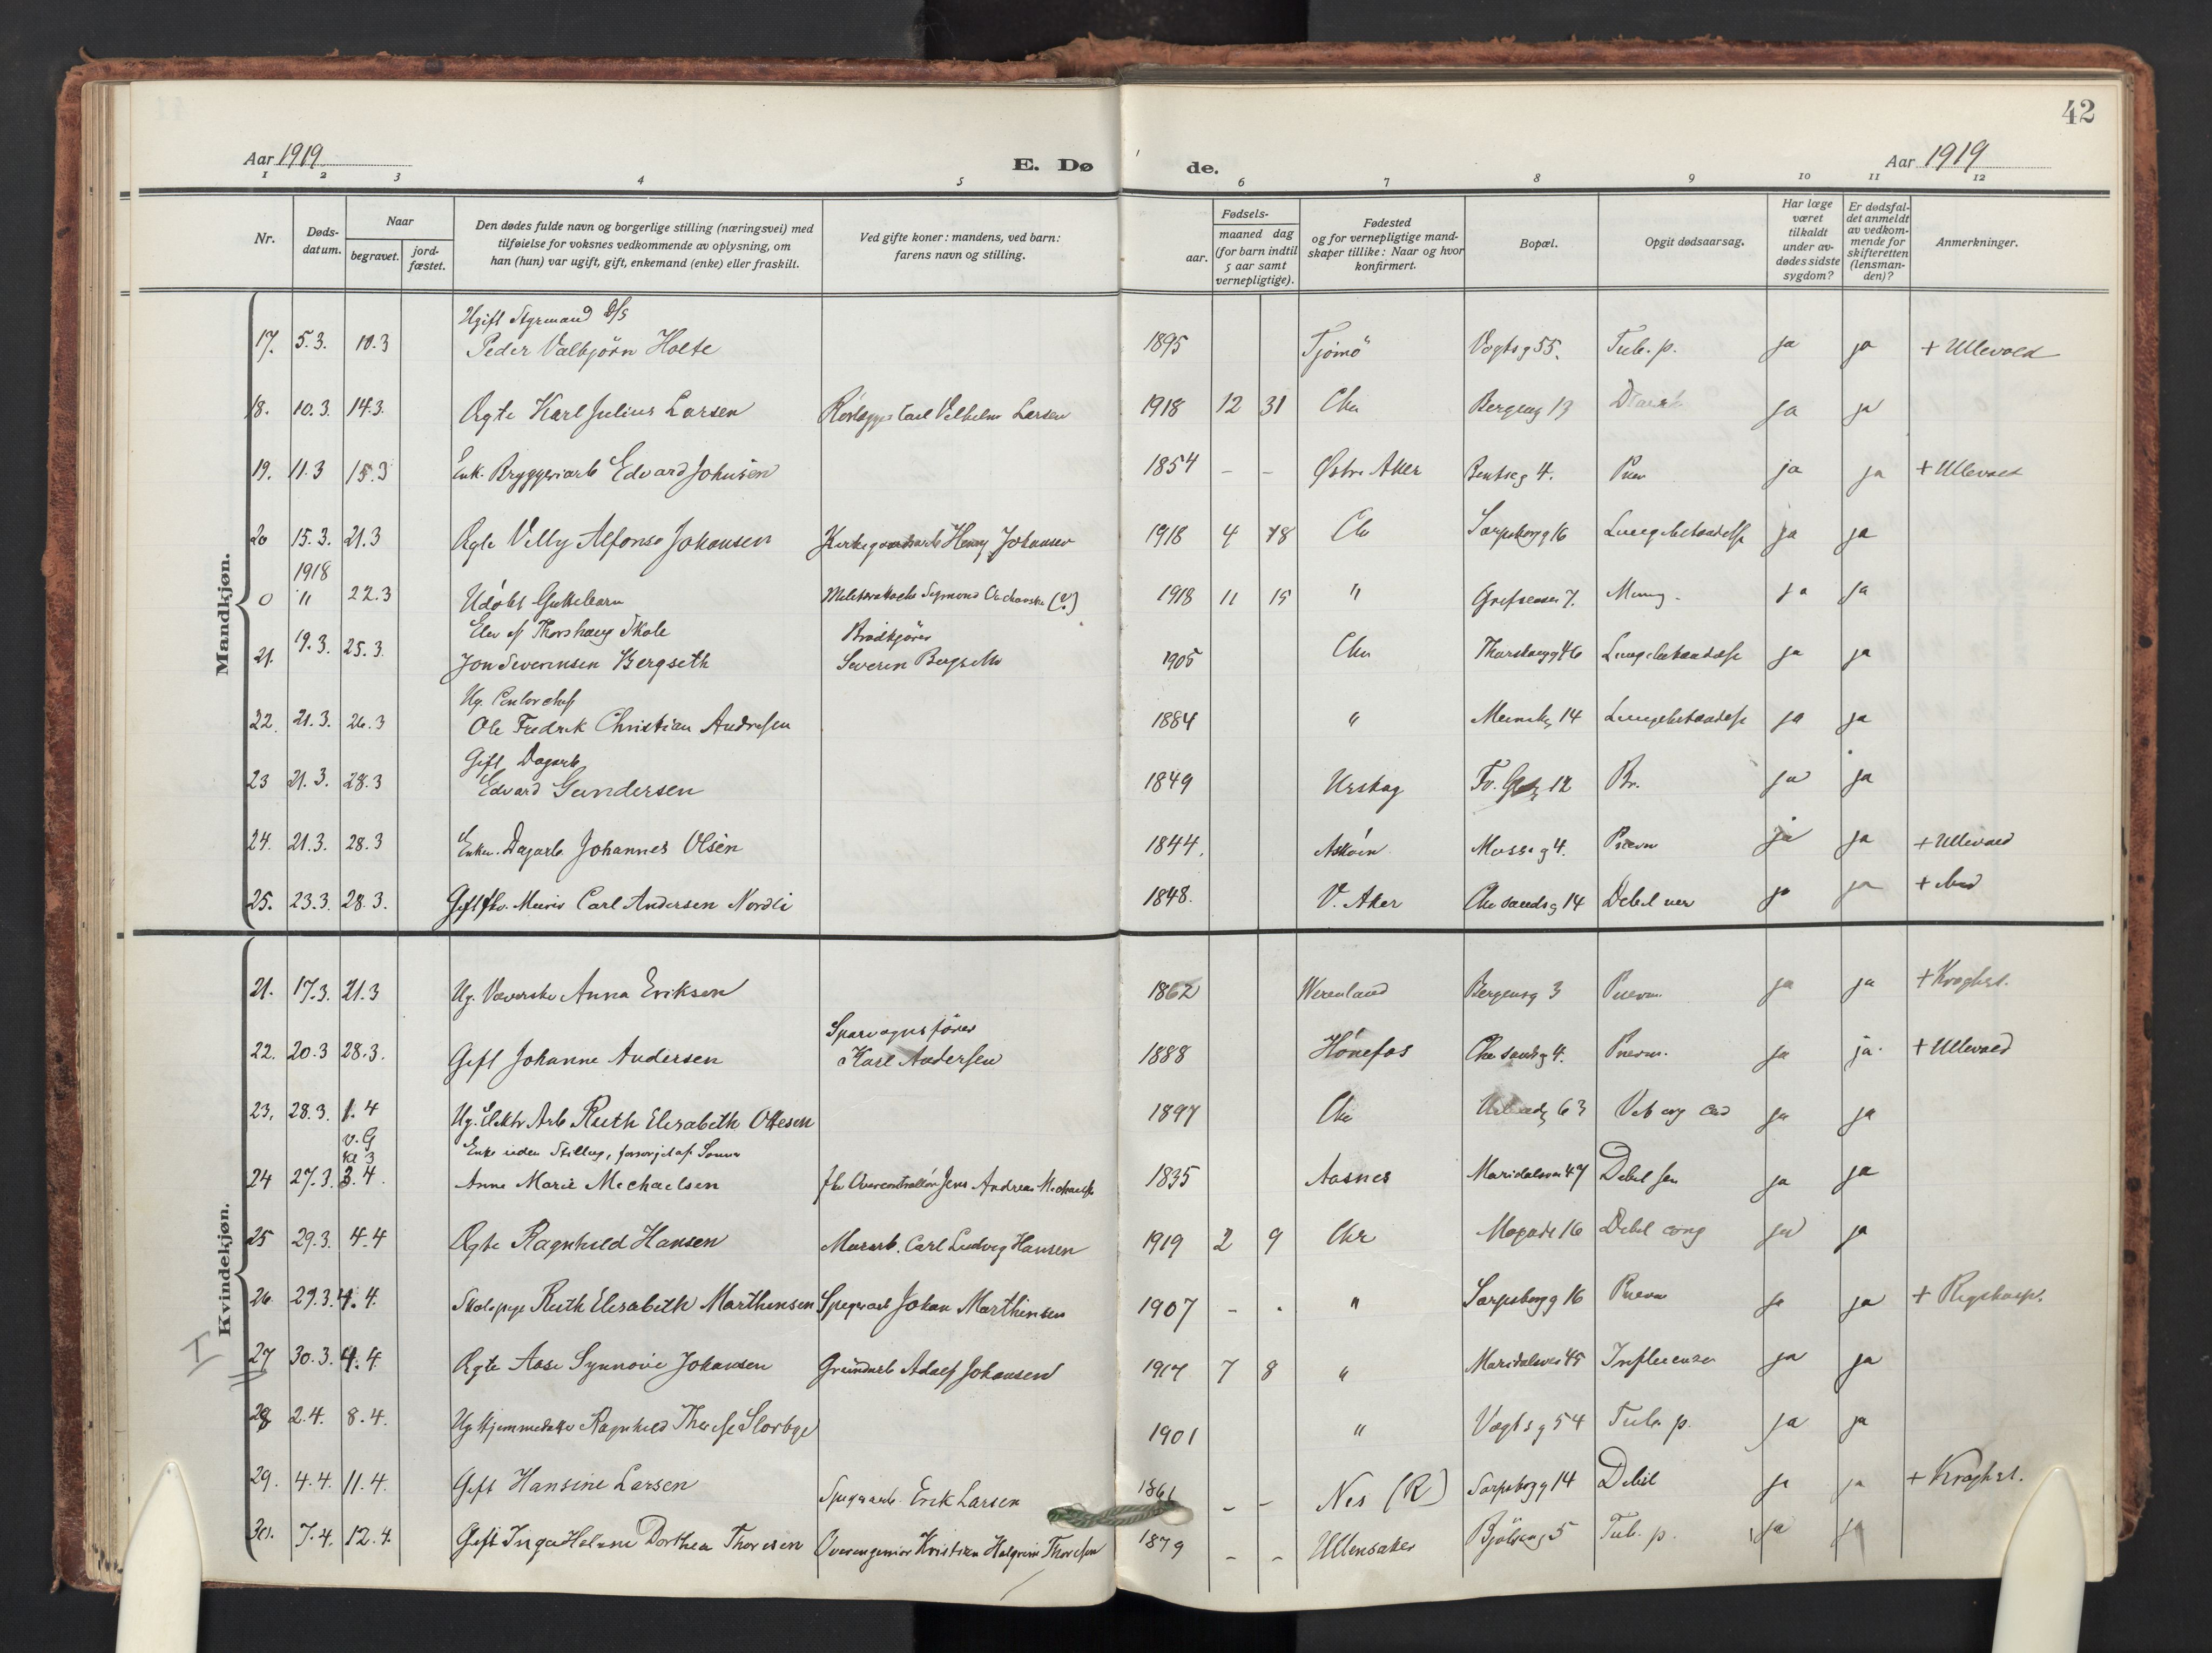 42
Aar 1919
E. Dø de.
Aar 1919
1 2 3 4 5 6 7 8 9 10 11 12
Nr.
Døds-datum.
Naar
begravet.
jord-fæstet.
Den dødes fulde navn og borgerlige stilling (næringsvei) med
tilføielse for voksnes vedkommende av oplysning, om
han (hun) var ugift, gift, enkemand (enke) eller fraskilt.
Ved gifte koner: mandens, ved barn:
farens navn og stilling.
Fødsels-
aar.
maaned dag
(for barn indtil
5 aar samt
vernepligtige).
Fødested
og for vernepligtige mand-
skaper tillike: Naar og hvor
konfirmert.
Bopæl.
Opgit dødsaarsag.
Har læge
været
tilkaldt
under av-
dødes sidste
sygdom?
Er dødsfal-
det anmeldt
av vedkom-
mende for
skifteretten
(lensman-
den)?
Anmerkninger.
Mandkjøn.
Ugift Styrmand D/S
17. 5.3. 10.3 Peder Valbjörn Holte 1895 Tjømö Vogtsg 55. Tub. p. ja ja + Ullevold
18. 10.3. 14.3. Ægte Karl Julius Larsen Carl Vilhelm Larsen 1918 12 31 Chra Bergensg 13 ja ja
19. 11.3 15.3 Enk. Bryggeriarb Edvard Johnsen 1854 - - Østre Aker Bentseg 4. Pnev ja ja + Ullevold
20 15.3. 21.3 Ægte Villy Alfonso Johansen Henry Johansen 1918 4 18 Ch Sarpsborgg 16 Lungebetændelse ja ja
1918
0 " 22.3 Udöbt Guttebarn (?) 1918 11 15 " Grefsenvn 7. ja ja
Elev af Thorshaug Skole Brødkjører
21. 19.3. 25.3. Jon Severinsen Bergseth Severin Bergseth 1905 Chra Thorshaugg 46 Lungebetændelse ja ja
Ug. Contorchef
22. 21.3. 26.3 Ole Fredrik Christian Andresen 1884 " 14 Lungebetændelse ja ja
Gift Dagarb
23 21.3. 28.3 Edvard Gundersen 1849 Urskog 12 Br. ja ja
24. 21.3. 28.3 Enkem. Dagarb. Johannes Olsen 1844. Askim Mosseg 4. Pnevm ja ja + Ullevold
25. 23.3. 28.3. Gift fhv. Murer Carl Andersen Nordli 1848. V. Aker Chrsandsg 14 Debil ja ja
Kvindekjøn.
21. 17.3. 21.3 Ug. Væverske Anna Eriksen 1862 Wermland Bergensg 3 Pnevm. ja ja + Kroghst.
Sporvognsfører
22. 20.3 28.3. Gift Johanne Andersen Karl Andersen 1888 Hönefos Chrsandsg 4. Pnevm. ja ja + Ullevold
23. 28.3. 1.4 Ug. Elektr Arb Ruth Elisabeth Ottesen 1897 Chr 63 ja ja
v. G
kl 3
Enke uden Stilling, forsørget af Sønner
24 27.3. 3.4. Anne Marie Michaelsen fhv Overcontrollör Jens Andreas Michaelsen 1835 Aasnes Maridalsvn 47 Debil sen ja ja
25 29.3. 4.4 Ægte Ragnhild Hansen Murarb. Carl Ludvig Hansen 1919 2 9 Chr 16 Debil cong ja ja
26. 29.3. 4.4. Skolepige Ruth Elisabeth Marthinsen Johan Marthinsen 1907 - - " Sarpsborgg 16 Pnevm ja ja + Rigshosp.
I
27 30.3. 4.4. Ægte Aase Synnöve Johansen Adolf Johansen 1917 7 8 " Maridalsvn 45 Influenza ja ja
28 2.4. 8.4. Ug Hjemmedatter Ragnhild Therese Storbye 1901 " Vogtsg 54 Tub. p. ja ja
29. 4.4. 11.4. Gift Hansine Larsen Erik Larsen 1861 - - Nes (R) Sarpsborgg 14 Debil ja ja + Kroghst.
30. 7.4. 12.4. Gift Inga Helene Dorthea Thoresen Kristian Halgrim Thoresen 1879 - - Ullensaker Bjölseng 5 Tub. p. ja ja